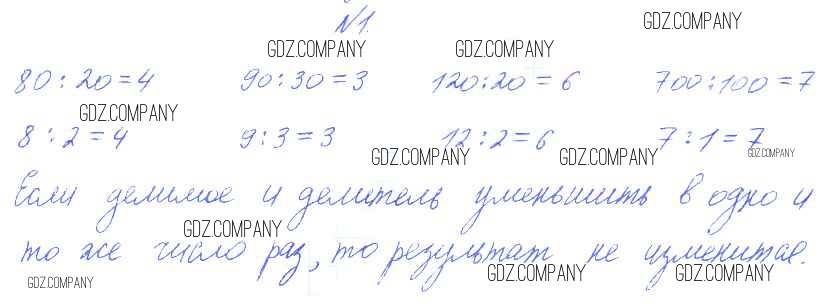 №1.
GDZ.COMPANY
GDZ.COMPANY GDZ.COMPANY
80:20=4 90:30=3 120:20=6 700:100=7
GDZ.COMPANY
8:2=4 9:3=3 12:2=6 7:1=7
GDZ.COMPANY GDZ.COMPANY GDZ.COMPANY
Если делимое и делитель уменьшить в одно и
GDZ.COMPANY
то же число раз, то результат не изменится.
GDZ.COMPANY GDZ.COMPANY GDZ.COMPANY